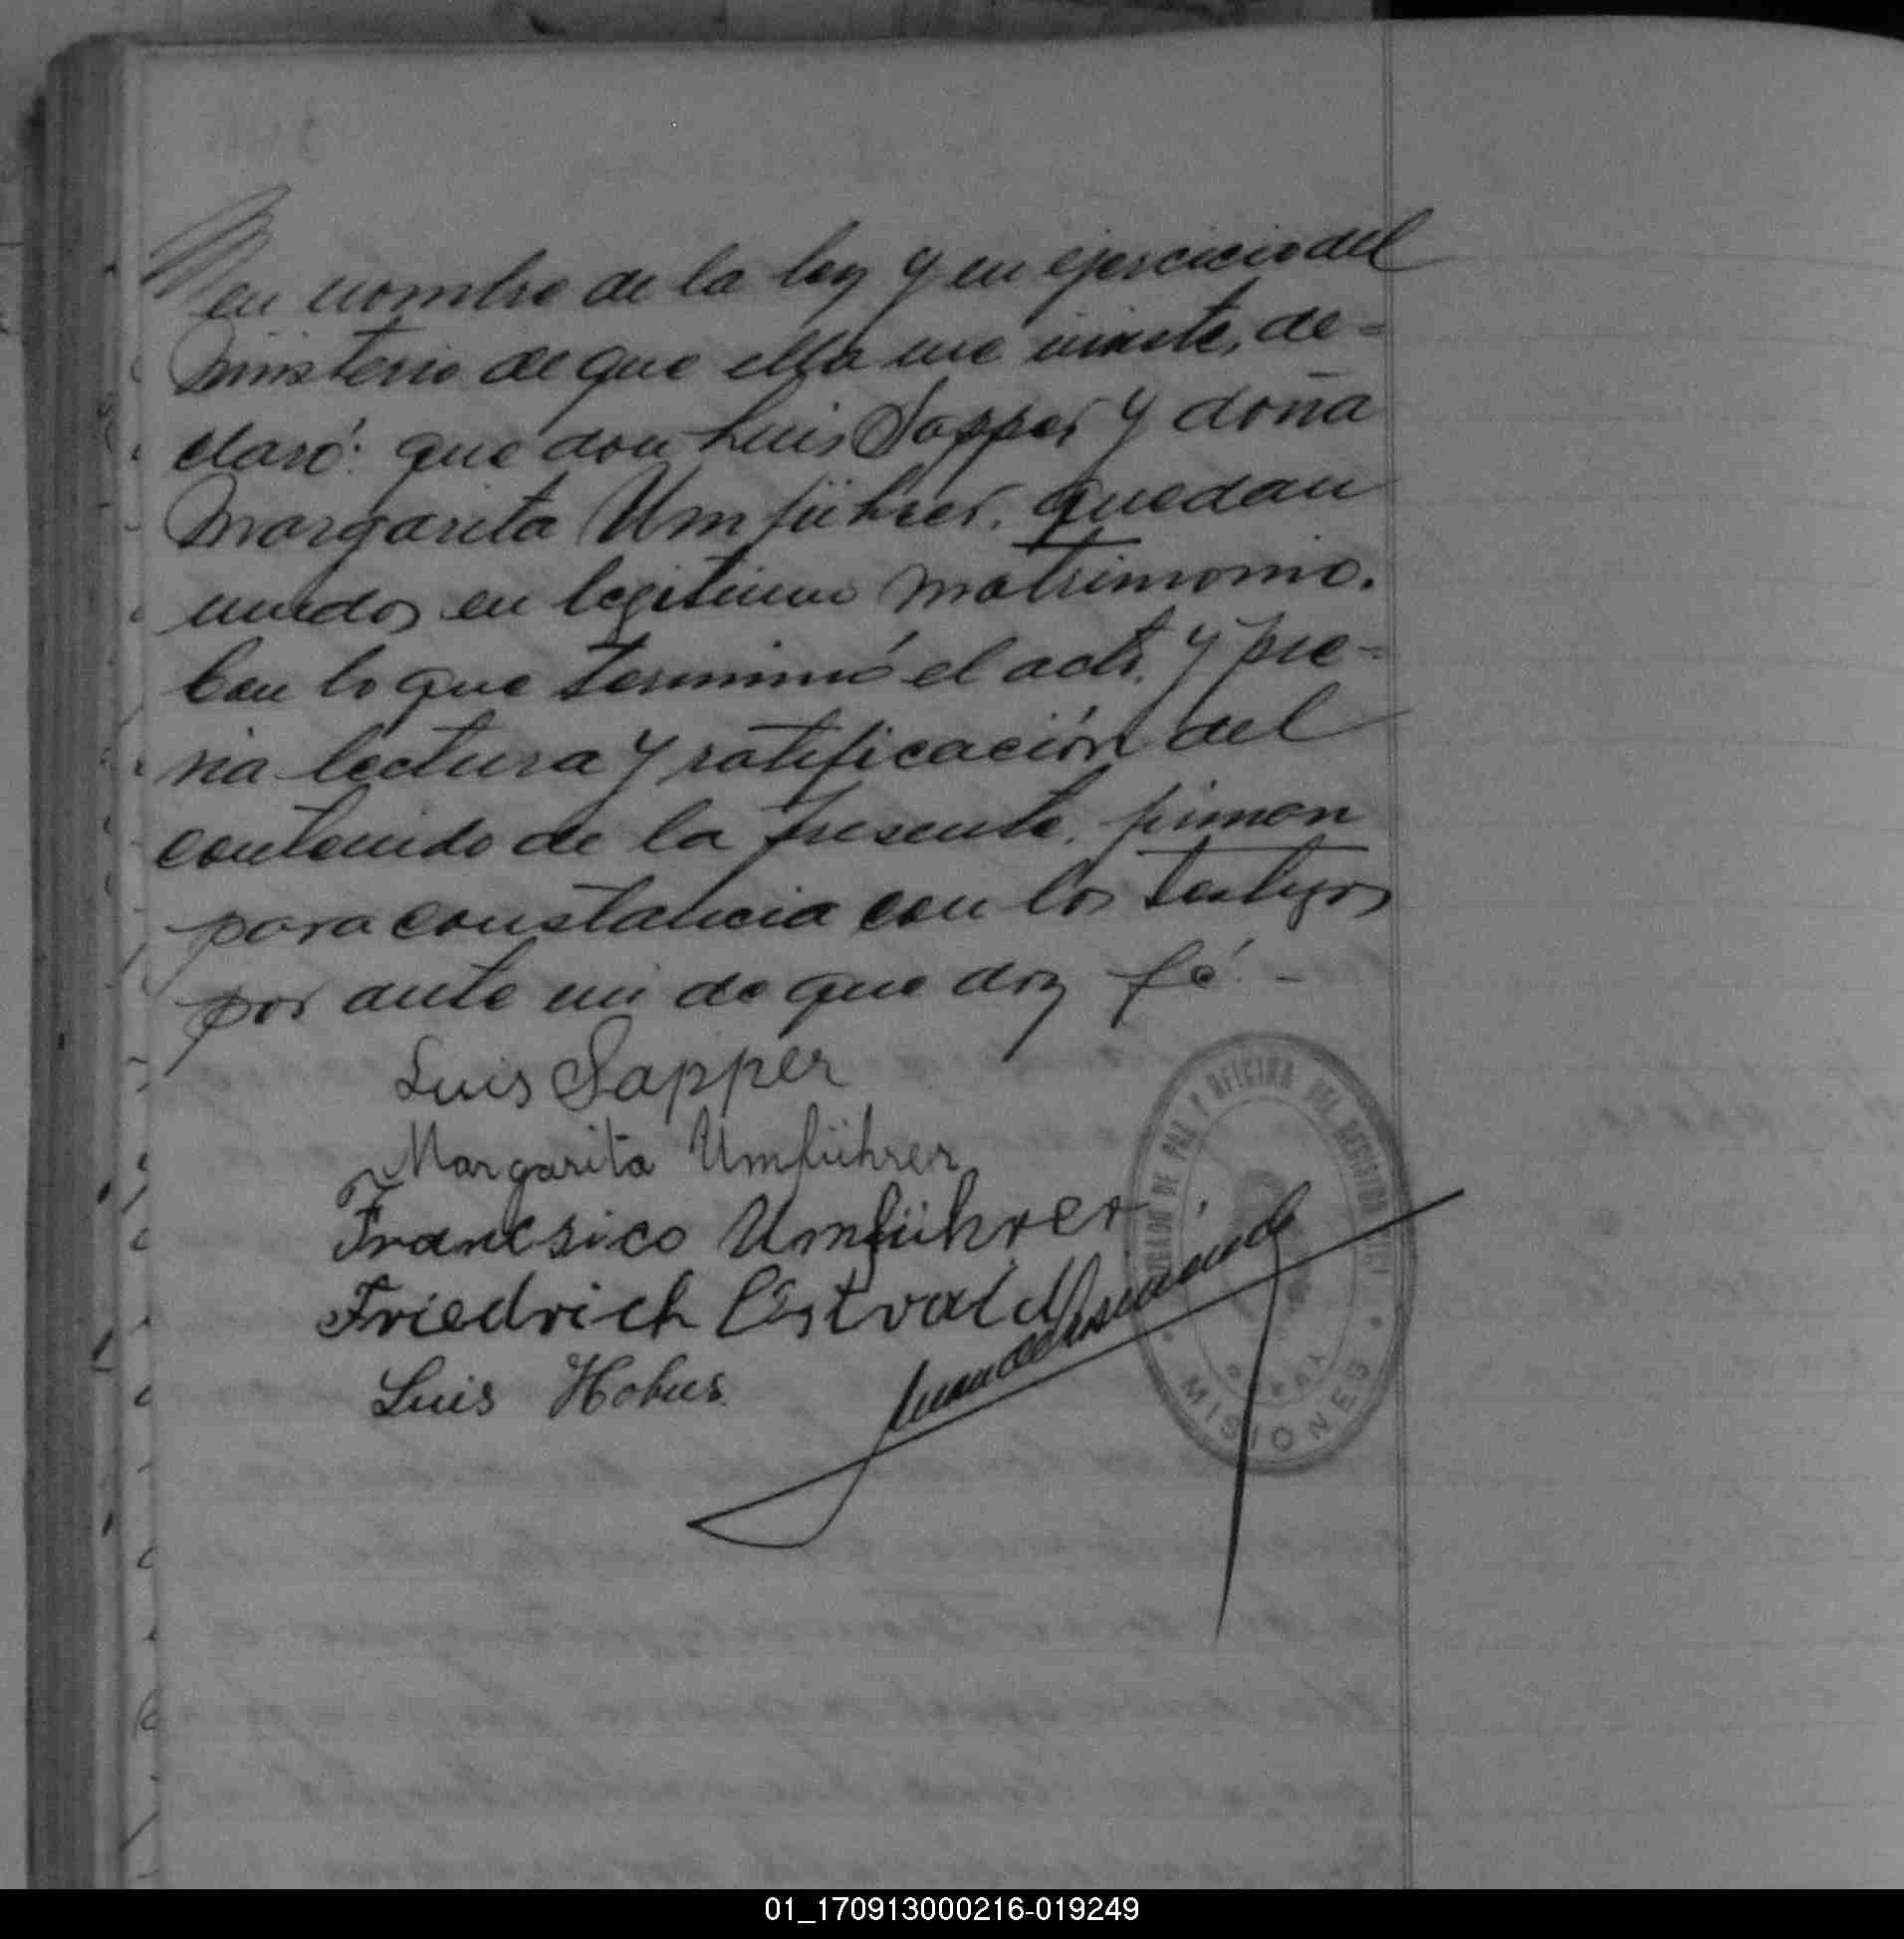 en nombre de la ley y en ejercicio del
ministerio de que ella me inviste, de=
claró: que don Luis Sapper y doña
Margarita Umführer, quedan
unidos en legitimo matrimonio.
Con lo que terminó el acto, y pre-
via lectura y ratificación del
contenido de la presente, firman
para constancia con los testigos
por ante mi de que doy fé. -
Luis Sapper
Margarita Umführer
Francsico Umführer
Friedrich
Luis Hobus
JUZGADO DE PAZ Y OFICINA DEL REGISTRO CIVIL
MISIONES
01_170913000216-019249